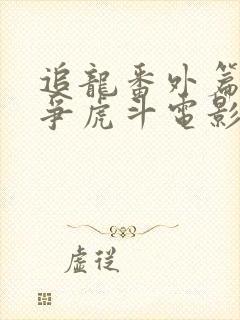 追龍番外篇
爭虎斗電影
虛従